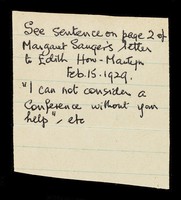 See sentence on page 2 of
Margaret Sanger's letter
to Edith How-Martyn
Feb. 15. 1929.
"I can not consider a
Conference without your
help", etc